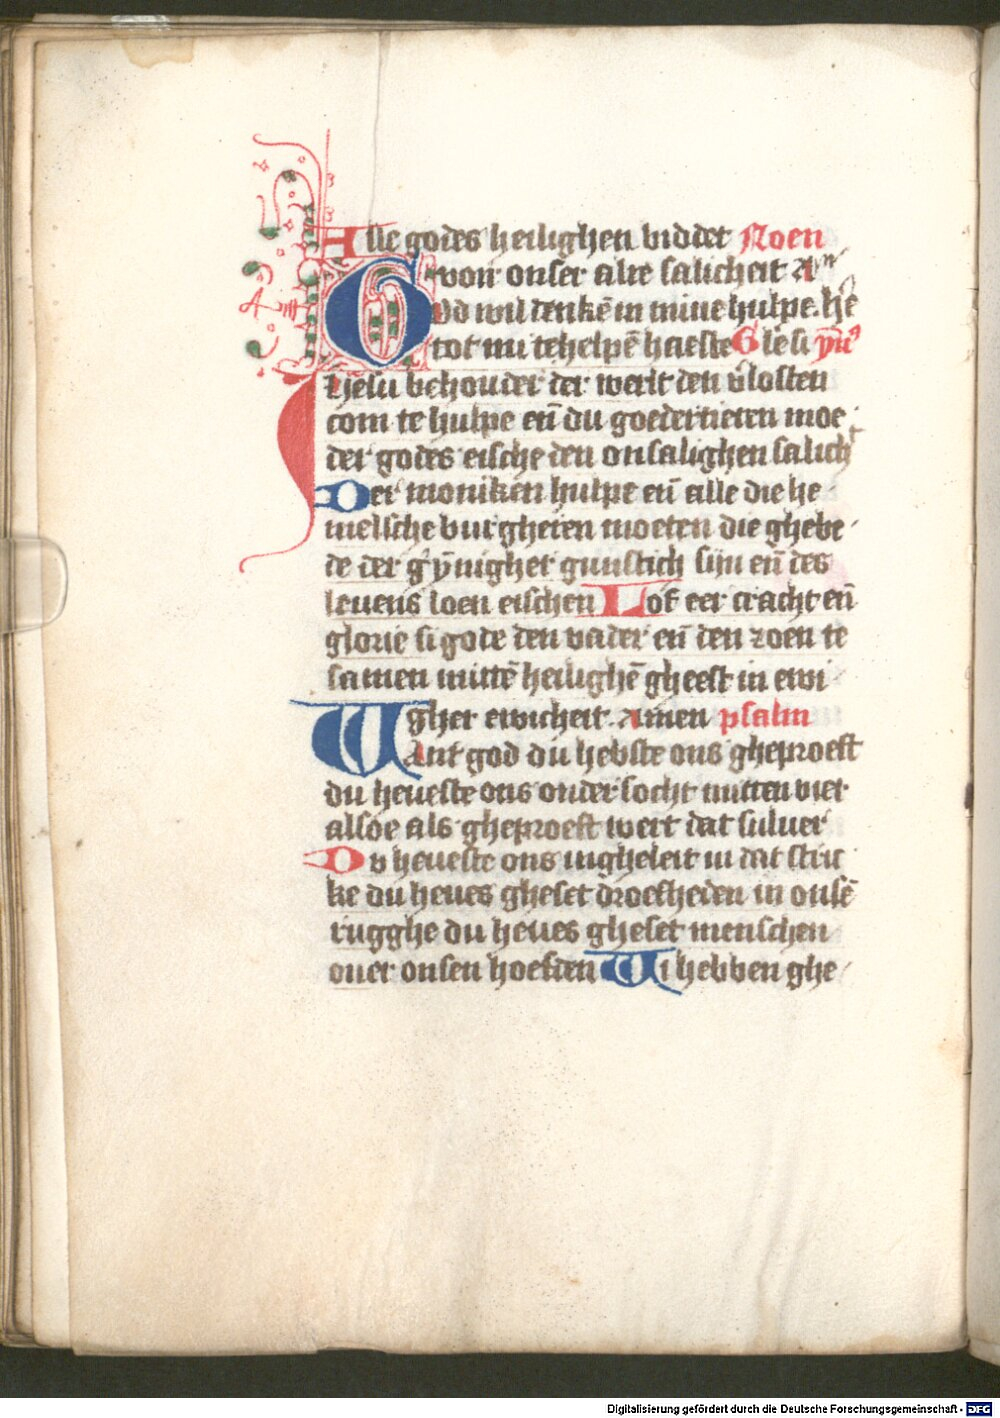 Alle godes heilighen biddet Noen
voir onser alre salicheit Am̄
God wil denkē in mine hulpe. he
tot mi te helpē haeste Gle si ym̄
Jhesu behouder der werlt den vlosten
com te hulpe en̄ du goedertieren moe
der godes eische den onsalighen salich
Der moniken hulpe en̄ alle die he
melsche burgheren moeten die ghebe
de der gȳnigher gunstich sijn en̄ des
leuens loen eischen Lof eer cracht en̄
glorie si gode den vader en̄ den zoen te
samen mittē heilighē gheest in ewi
gher ewicheit. Amen psalm
Want god du hebste ons gheproeft
du heueste ons ondersocht mitten vier
alsoe als gheproeft wert dat suluer
Du heueste ons ingheleit in dat stric
ke du heues gheset droefheden in onsē
rugghe du heues gheset menschen
ouer onsen hoefden Wi hebben ghe
Digitalisierung gefördert durch die Deutsche Forschungsgemeinschaft - DFG